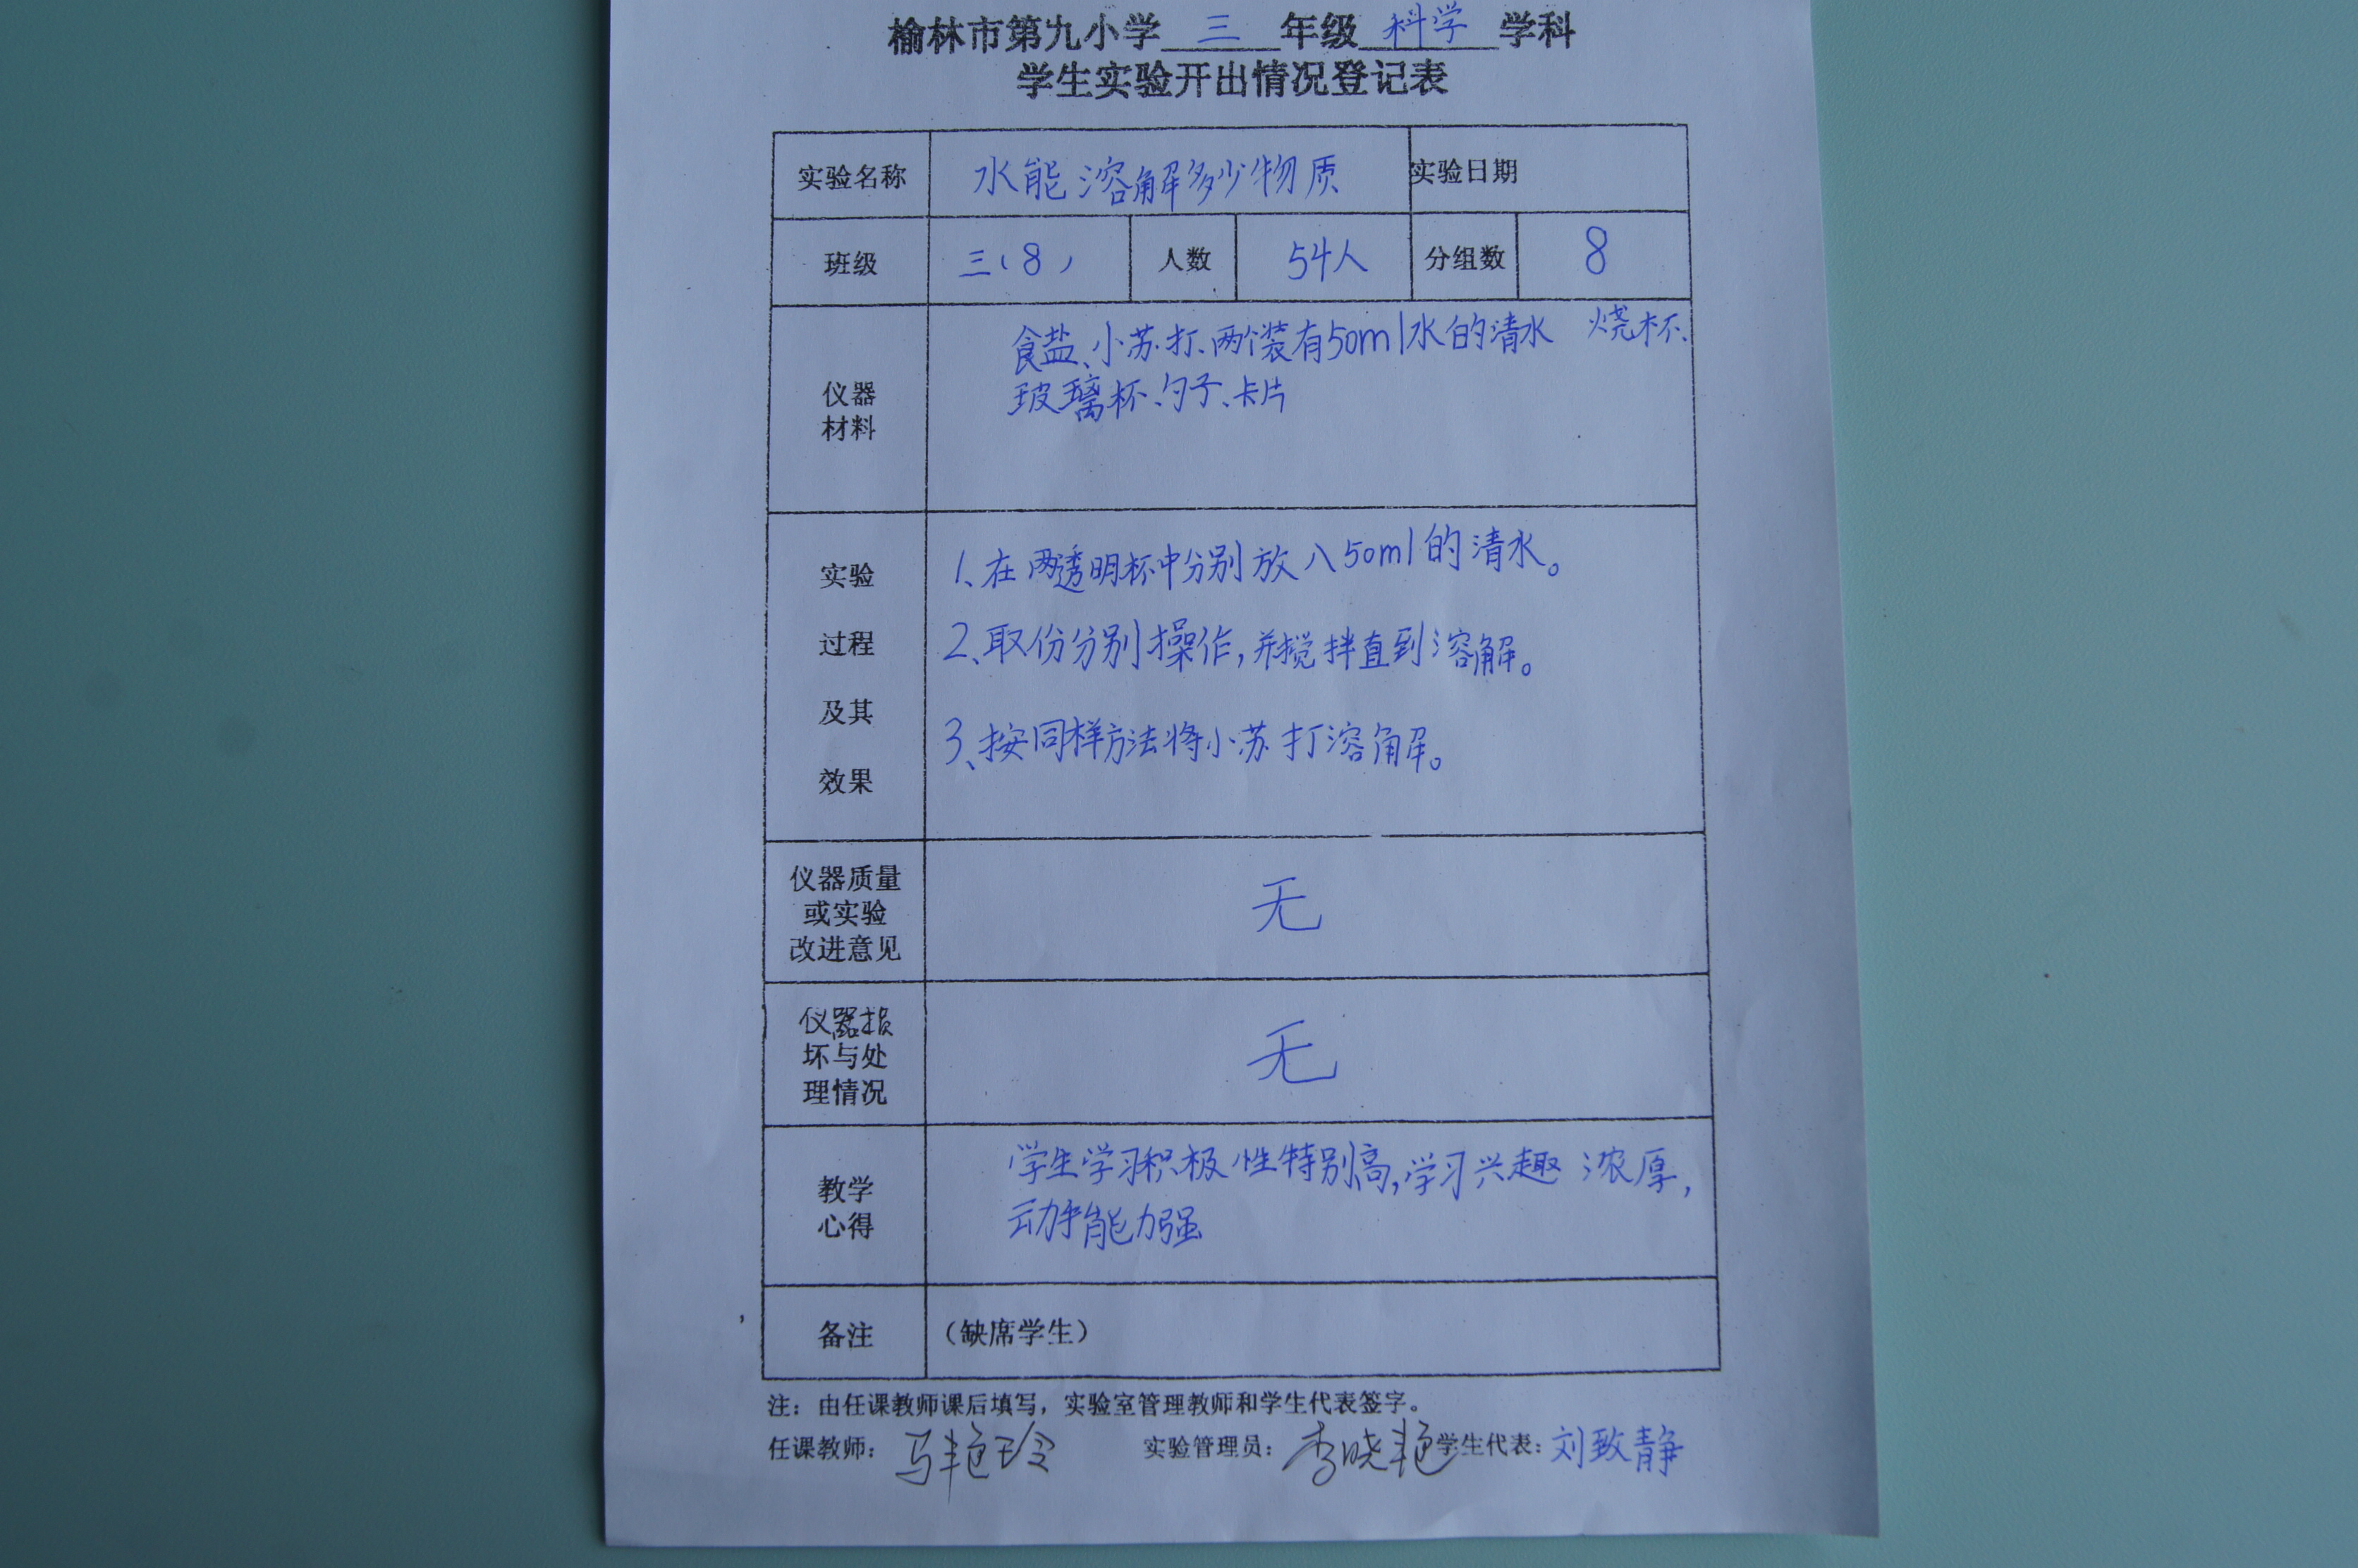 榆林市第九小学 三 年级 科学 学科
学生实验开出情况登记表
实验名称 水能溶解多少物质 实验日期
班级 三(8) 人数 54人 分组数 8
仪器
材料
食盐、小苏打、两个装有50ml水的清水 烧杯、
玻璃杯、勺子、卡片
实验
过程
及其
效果
1、在两透明杯中分别放入50ml的清水。
2、取份分别操作,并搅拌直到溶解。
3、按同样方法将小苏打溶解。
仪器质量
或实验
改进意见
无
仪器损
坏与处
理情况
无
教学
心得
学生学习积极性特别高,学习兴趣浓厚,
动手能力强
备注 (缺席学生)
注:由任课教师课后填写,实验室管理教师和学生代表签字。
任课教师:马艳玲 实验管理员:李晓艳 学生代表:刘致静